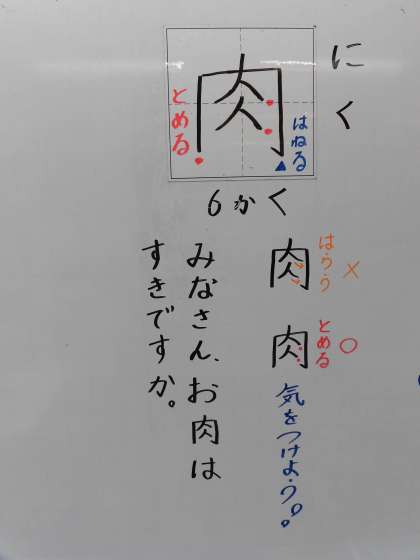 肉
にく
とめる
はねる
6かく
肉
はらう
×
肉
とめる
○
気をつけよう!!
みなさん、お肉は
すきですか。